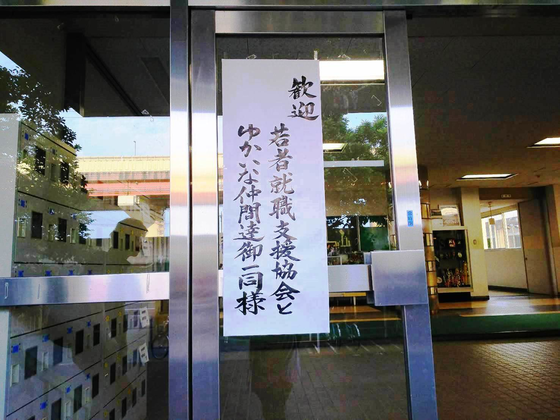 歓迎
若者就職支援協会と
ゆかいな仲間達御一同様